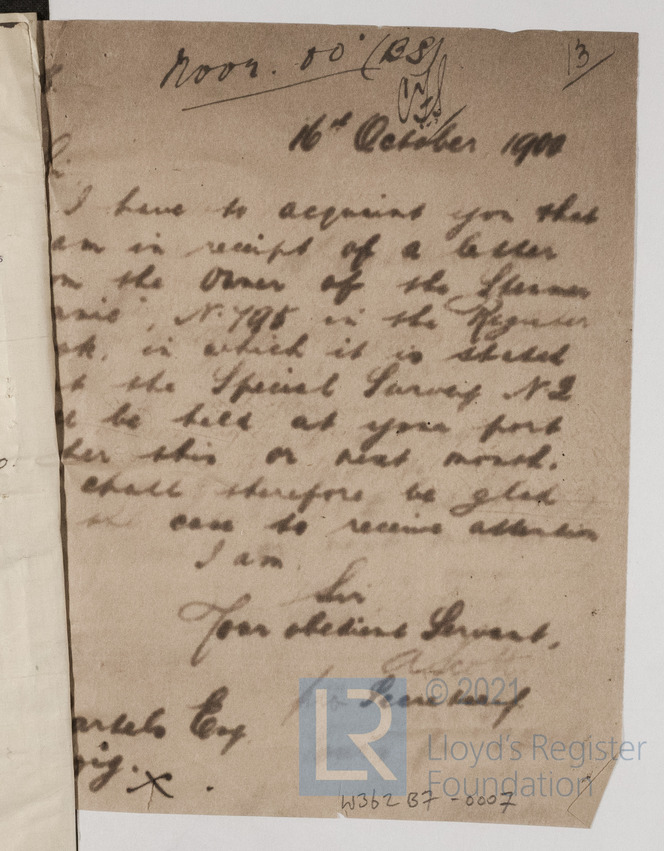 (BS)
13
16th October 1900
I have to acquaint you that
am in receipt of a letter
the Owner of the Steamer
N. 795 in the Register
in which it is stated
the Special Survey No 2
be held at your port
this or next month.
shall therefore be glad
case to receive attention
I am
Sir
Your obedient Servant,
A. Scott
pro Secretary
Esq
© 2021
LR
Lloyd's Register
Foundation
W362 B7 - 0007